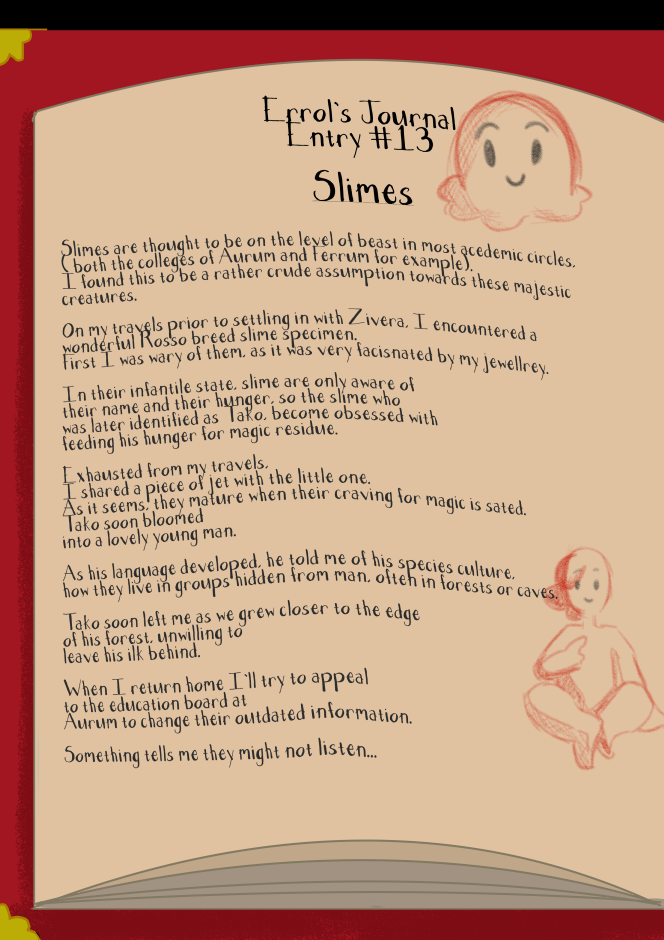 Errol's Journal
Entry #13
Slimes
Slimes are thought to be on the level of beast in most acedemic circles.
(both the colleges of Aurum and Ferrum for example).
I found this to be a rather crude assumption towards these majestic
creatures.
On my travels prior to settling in with Zivera, I encountered a
wonderful Rosso breed slime specimen.
First I was wary of them, as it was very facisnated by my jewellrey.
In their infantile state, slime are only aware of
their name and their hunger, so the slime who
was later identified as Tako, become obsessed with
feeding his hunger for magic residue.
Exhausted from my travels,
I shared a piece of jet with the little one.
As it seems, they mature when their craving for magic is sated.
Tako soon bloomed
into a lovely young man.
As his language developed, he told me of his species culture,
how they live in groups hidden from man, often in forests or caves.
Tako soon left me as we grew closer to the edge
of his forest, unwilling to
leave his ilk behind.
When I return home I'll try to appeal
to the education board at
Aurum to change their outdated information.
Something tells me they might not listen...